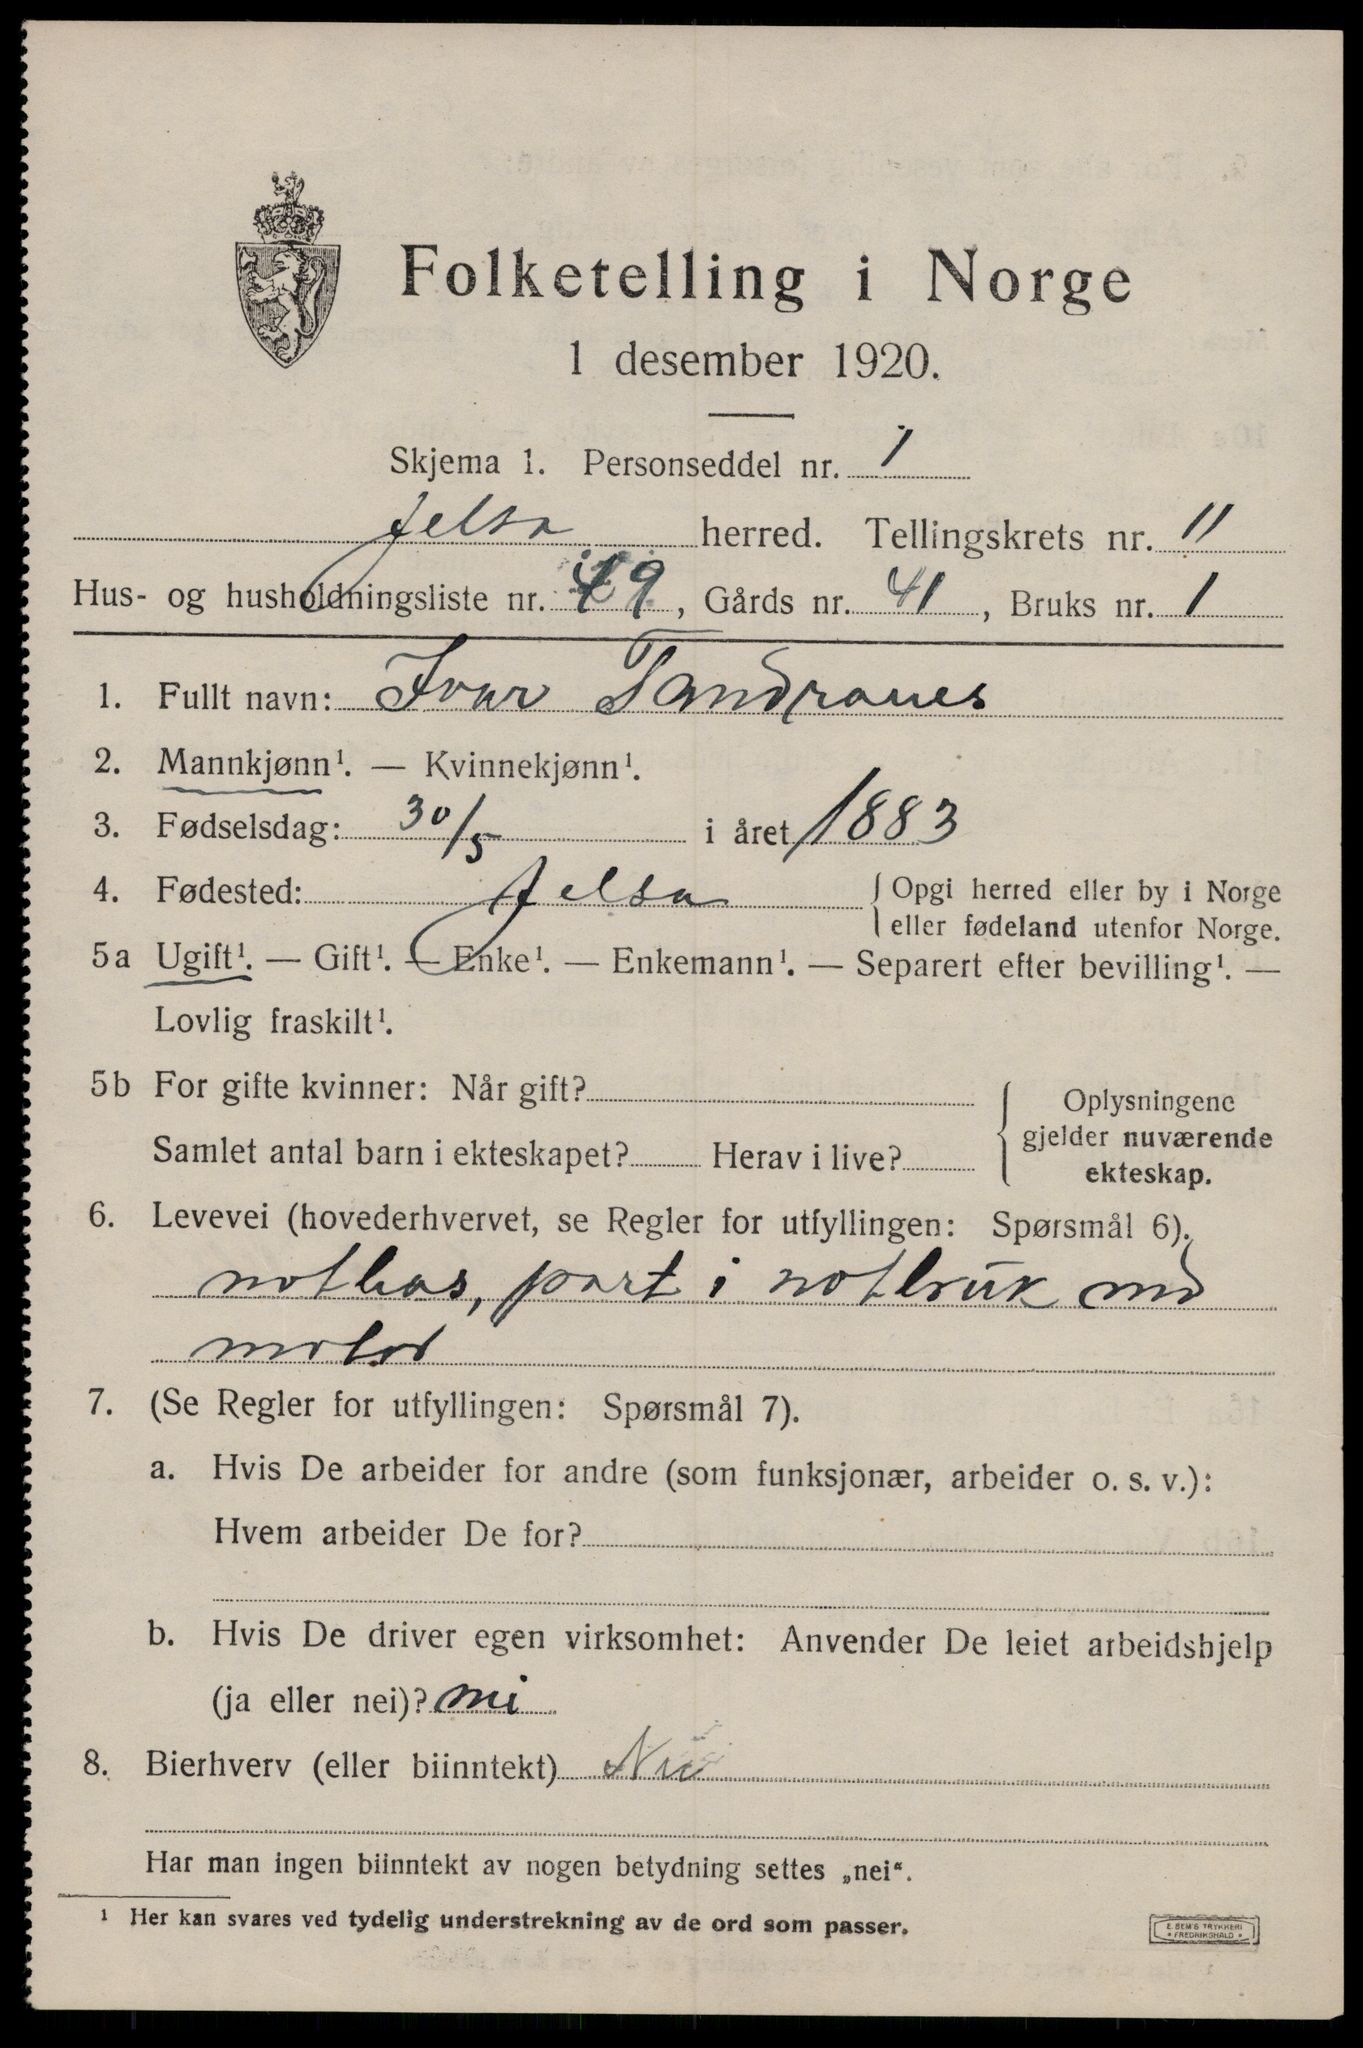 Folketelling i Norge
1 desember 1920.
Skjema 1. Personseddel nr. 1
Jelsa herred. Tellingskrets nr. 11
Hus- og husholdningsliste nr. 9, Gårds nr. 41, Bruks nr. 1
1. Fullt navn: Ivar Tandranes
2. Mannkjønn¹. — Kvinnekjønn¹.
3. Fødselsdag: 30/5 i året 1883
4. Fødested: Jelsa {Opgi herred eller by i Norge
eller fødeland utenfor Norge.
5a Ugift¹. — Gift¹. — Enke¹. — Enkemann¹. — Separert efter bevilling¹. —
Lovlig fraskilt¹.
5b For gifte kvinner: Når gift?
Samlet antal barn i ekteskapet? Herav i live?
Oplysningene
gjelder nuværende
ekteskap.
6. Levevei (hovederhvervet, se Regler for utfyllingen: Spørsmål 6).
notbas, part i notbruk med
motor
7. (Se Regler for utfyllingen: Spørsmål 7).
a. Hvis De arbeider for andre (som funksjonær, arbeider o. s. v.):
Hvem arbeider De for?
b. Hvis De driver egen virksomhet: Anvender De leiet arbeidshjelp
(ja eller nei)? nei
8. Bierhverv (eller biinntekt) Nei
Har man ingen biinntekt av nogen betydning settes „nei“.
¹ Her kan svares ved tydelig understrekning av de ord som passer.
E. SEM'S TRYKKERI
* FREDRIKSHALD *